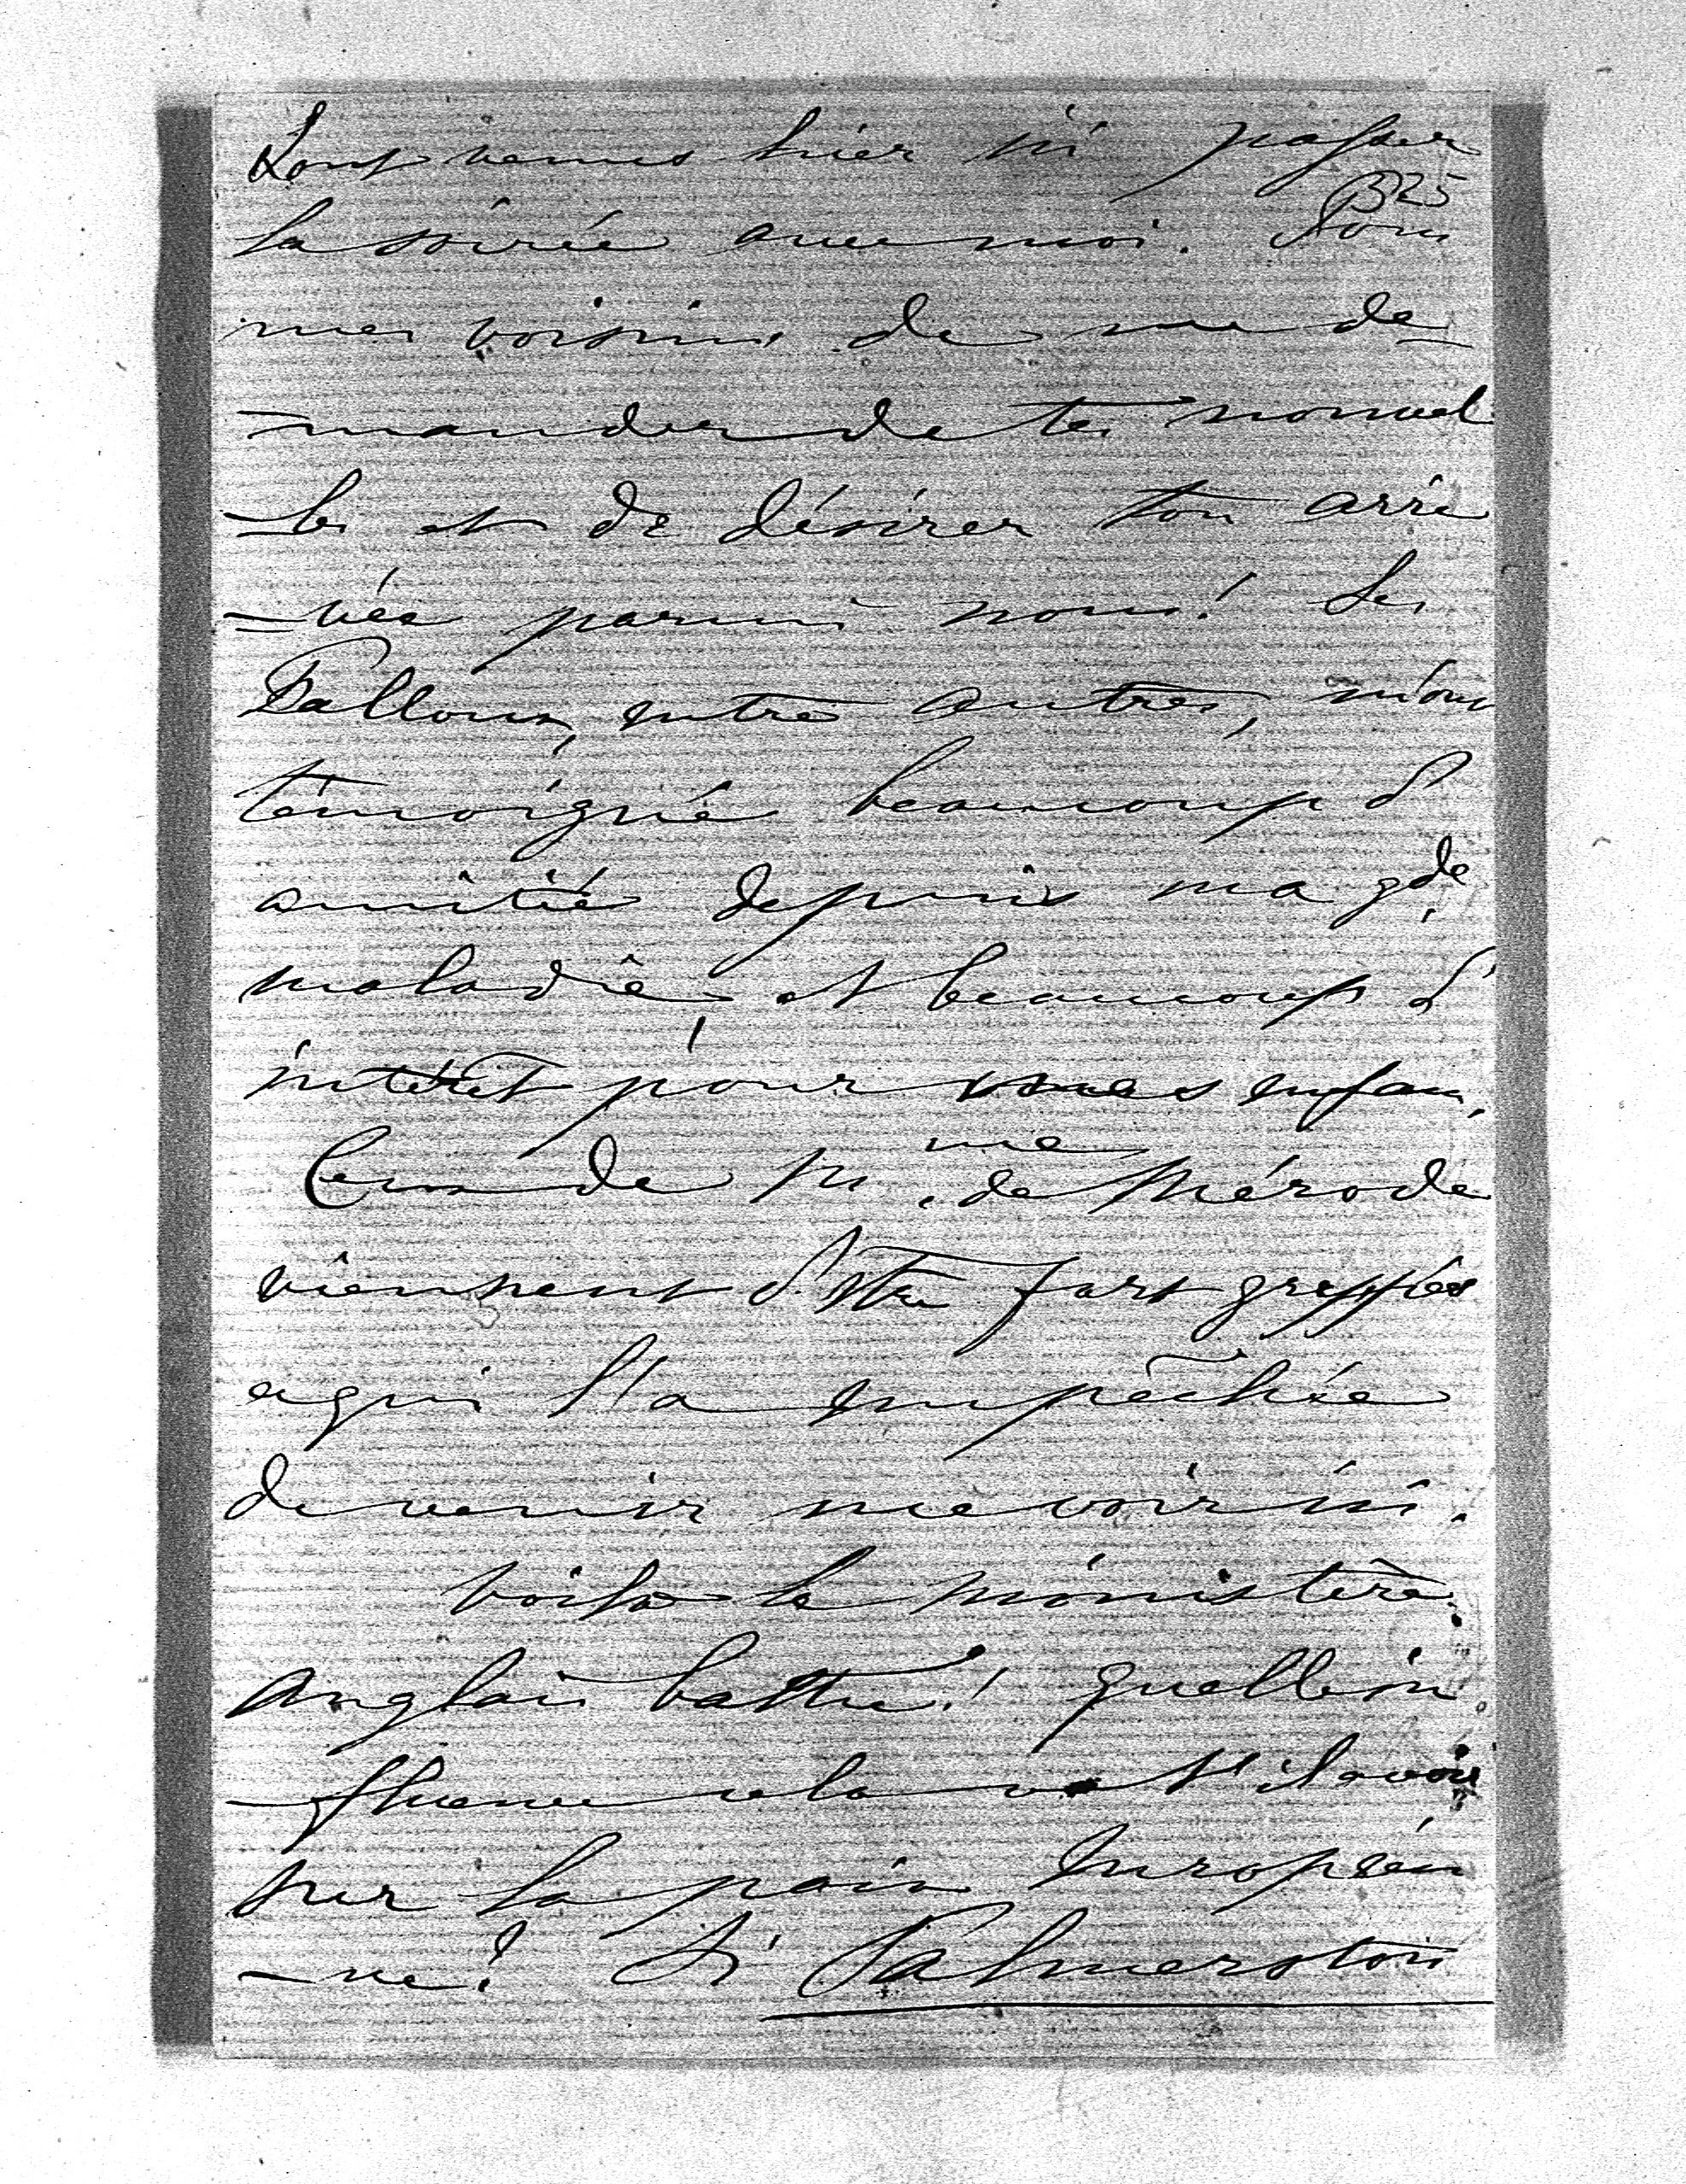 sont venus hier ici passer
325
la soirée avec moi. Tous
mes voisins de me de
-mander de tes nouvel
-les et de désirer ton arri
-vée parmi nous! Les
Falloux, entre autres, m'ont
témoigné beaucoup d'
amitié depuis ma gde
maladie, et beaucoup d'
intérêt pour mes enfans.
Ceux de Mme de Mérode
viennent d'être fort grippés
ce qui l'a empêchée
de venir me voir ici.
Voilà le ministère
anglais battu! Quelle in
-fluence cela va t'il avoir
sur la paix Européen
-ne? Si Palmerston